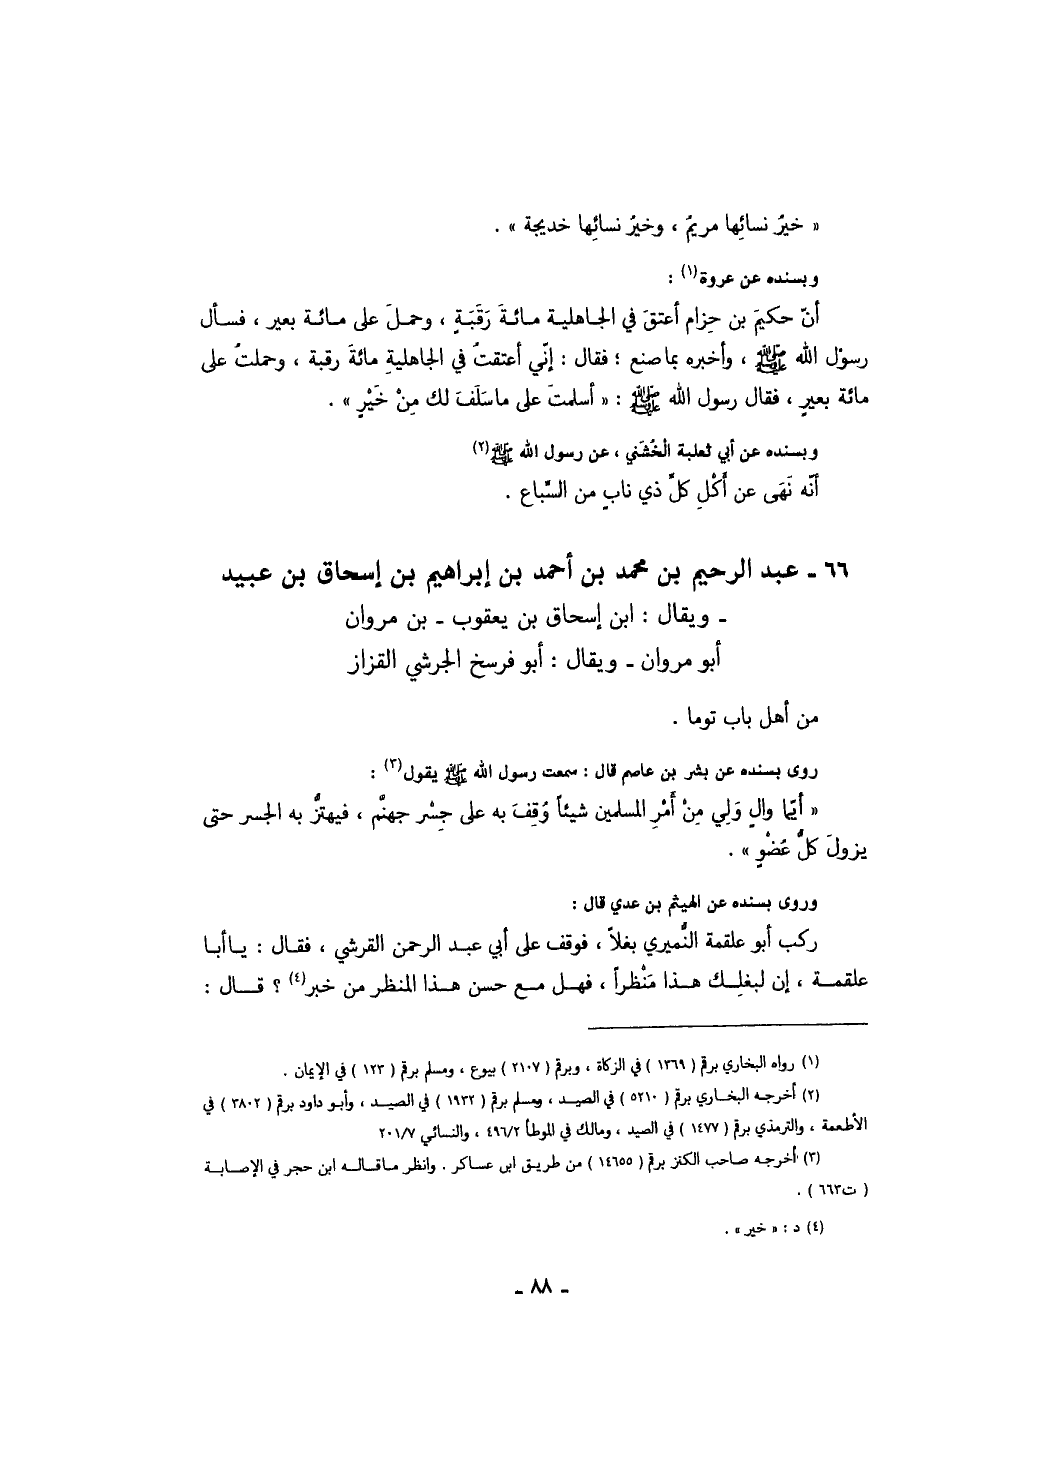 « خيرُ نسائِها مريمُ ، وخيرُ نسائِها خديجة » .
وبسنده عن عروة(١) :
أنّ حكيمَ بن حِزام أعتقَ في الجاهلية مائةَ رَقَبَةٍ ، وحملَ على مائة بعير ، فسأل
رسوْل الله ﷺ ، وأخبره بما صنع ؛ فقال : إنّي أعتقتُ في الجاهليةِ مائةَ رقبة ، وحملتُ على
مائة بعيرٍ ، فقال رسول الله ﷺ : « أسلمتَ على ما سَلَفَ لك مِنْ خَيْرٍ » .
وبسنده عن أبي ثعلبة الخُشَني ، عن رسول الله ﷺ(٢)
أنّه نَهَى عن أَكْلِ كلِّ ذي نابٍ من السِّباع .
٦٦ ـ عبد الرحيم بن محمد بن أحمد بن إبراهيم بن إسحاق بن عبيد
ـ ويقال : ابن إسحاق بن يعقوب ـ بن مروان
أبو مروان ـ ويقال : أبو فرسخ الجرشي القزاز
من أهل باب توما .
روى بسنده عن بشر بن عاصم قال : سمعت رسول الله ﷺ يقول(٣) :
« أيّما والٍ وَلِي مِنْ أَمْرِ المسلمين شيئاً وُقِفَ به على جِسْر جهنَّم ، فيهتزُّ به الجسر حتى
يزولَ كلُّ عُضْوٍ » .
وروى بسنده عن الهيثم بن عدي قال :
ركب أبو علقمة النُّميري بغلاً ، فوقف على أبي عبد الرحمن القرشي ، فقال : يا أبا
علقمة ، إن لبغلِك هذا مَنْظراً ، فهل مع حسن هذا المنظر من خبر(٤) ؟ قال :
(١) رواه البخاري برقم ( ١٣٦٩ ) في الزكاة ، وبرقم ( ٢١٠٧ ) بيوع ، ومسلم برقم ( ١٢٣ ) في الإيمان .
(٢) أخرجه البخاري برقم ( ٥٢١٠ ) في الصيد ، ومسلم برقم ( ١٩٣٢ ) في الصيد ، وأبو داود برقم ( ٣٨٠٢ ) في
الأطعمة ، والترمذي برقم ( ١٤٧٧ ) في الصيد ، ومالك في الموطأ ٤٩٦/٢ ، والنسائي ٢٠١/٧
(٣) أخرجه صاحب الكنز برقم ( ١٤٦٥٥ ) من طريق ابن عساكر . وانظر ما قاله ابن حجر في الإصابة
( ت٦٦٣ ) .
(٤) د : « خير » .
ـ ٨٨ ـ